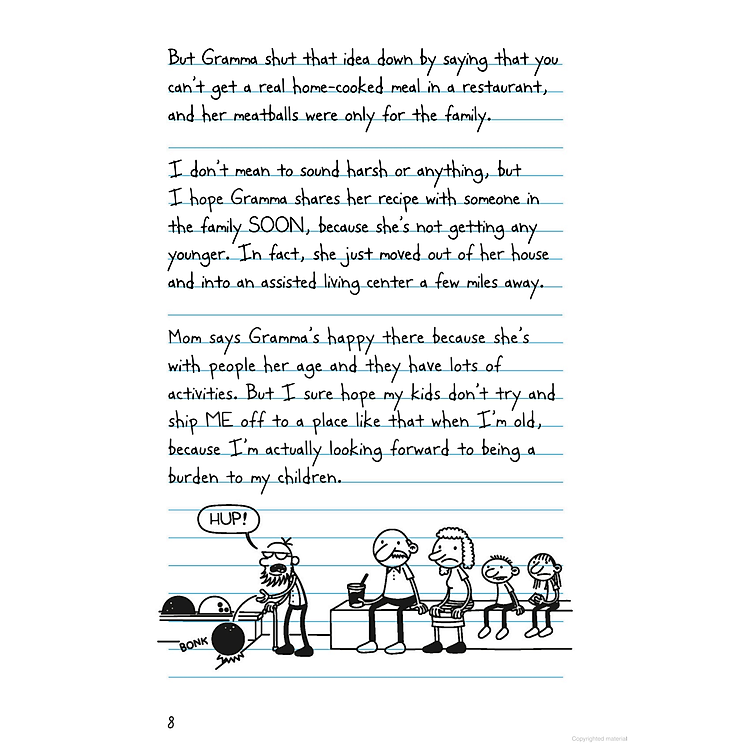 But Gramma shut that idea down by saying that you
can't get a real home-cooked meal in a restaurant,
and her meatballs were only for the family.
I don't mean to sound harsh or anything, but
I hope Gramma shares her recipe with someone in
the family SOON, because she's not getting any
younger. In fact, she just moved out of her house
and into an assisted living center a few miles away.
Mom says Gramma's happy there because she's
with people her age and they have lots of
activities. But I sure hope my kids don't try and
ship ME off to a place like that when I'm old,
because I'm actually looking forward to being a
burden to my children.
HUP!
BONK
8
Copyrighted material